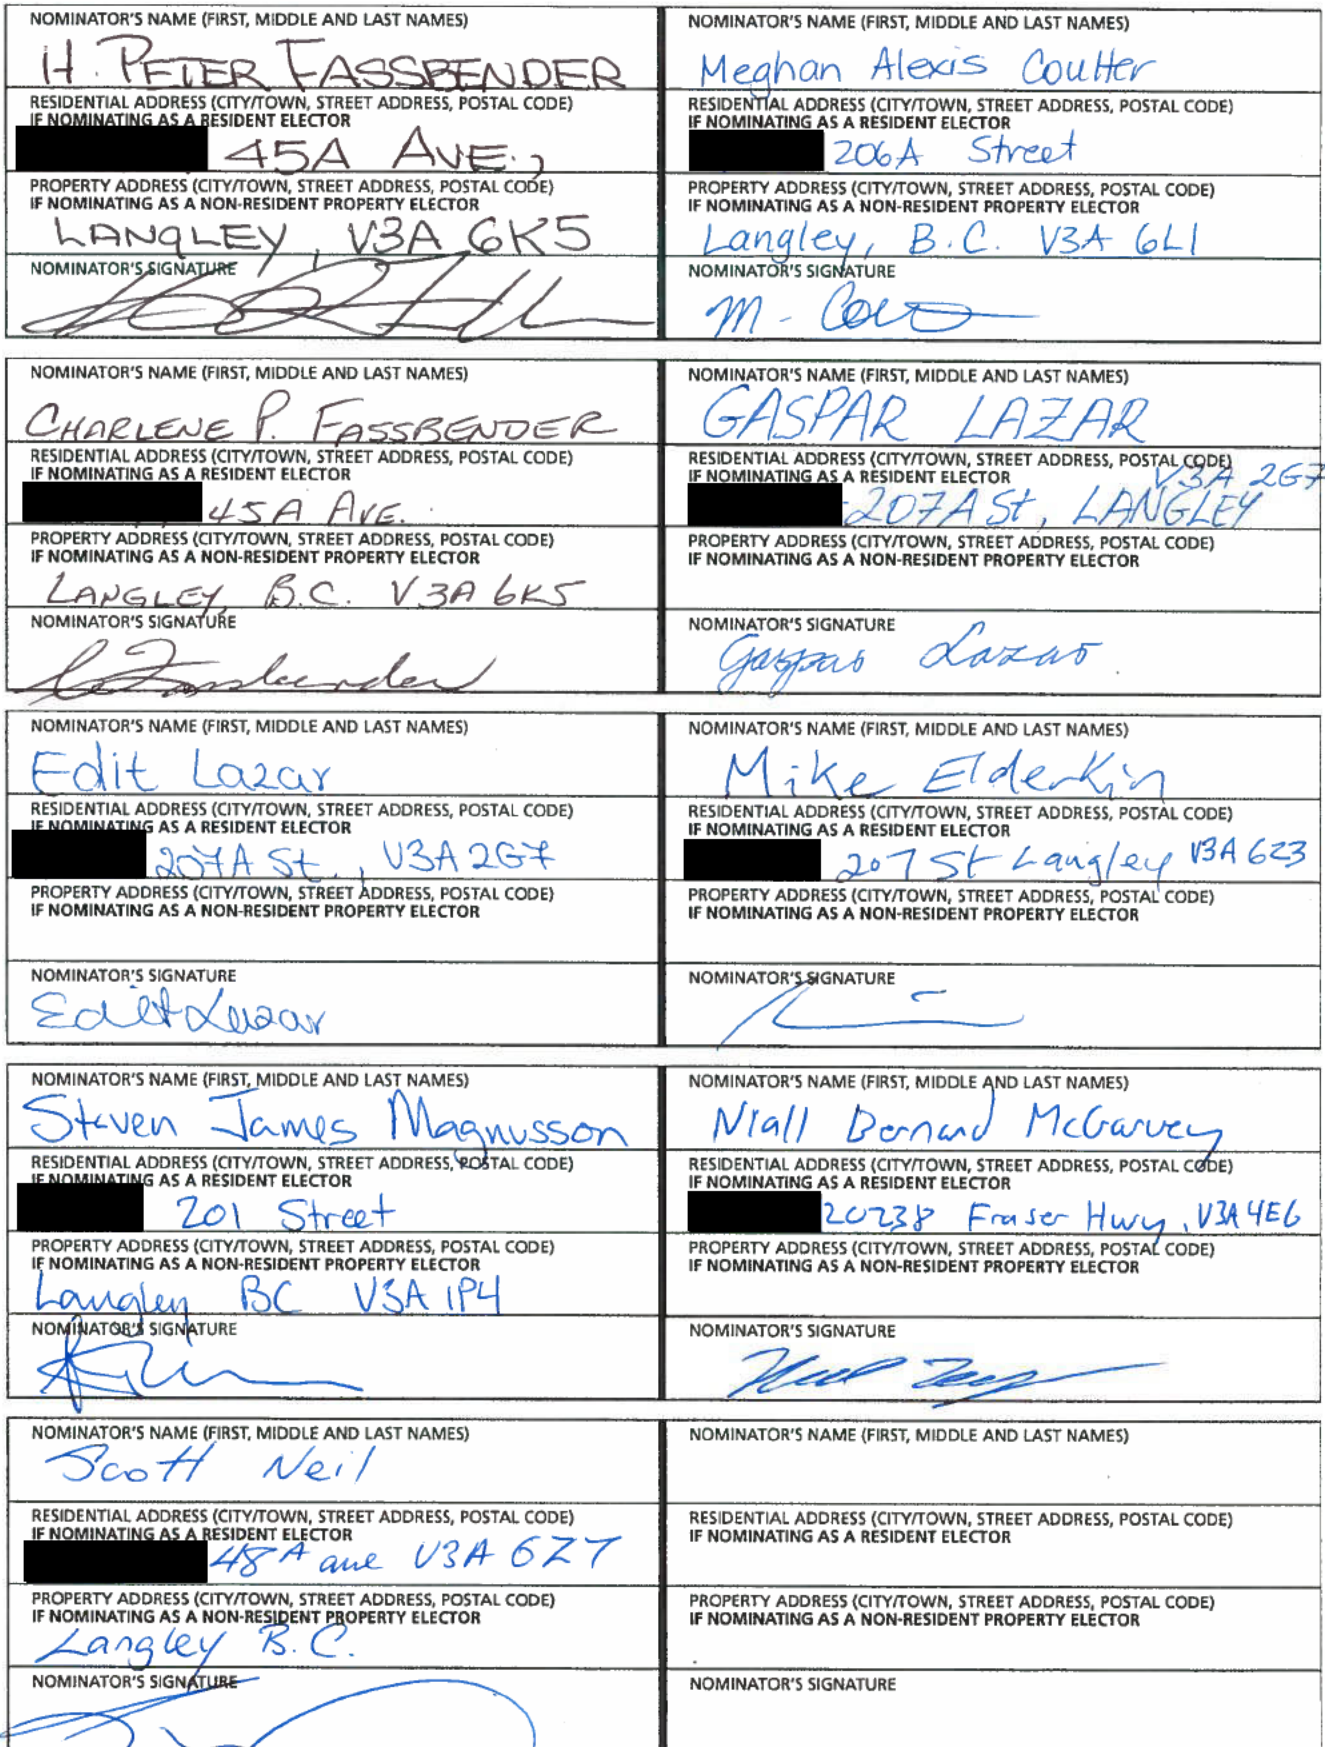 NOMINATOR'S NAME (FIRST, MIDDLE AND LAST NAMES)
H. PETER FASSBENDER
RESIDENTIAL ADDRESS (CITY/TOWN, STREET ADDRESS, POSTAL CODE)
IF NOMINATING AS A RESIDENT ELECTOR
45A AVE.,
PROPERTY ADDRESS (CITY/TOWN, STREET ADDRESS, POSTAL CODE)
IF NOMINATING AS A NON-RESIDENT PROPERTY ELECTOR
LANGLEY, V3A 6K5
NOMINATOR'S SIGNATURE
NOMINATOR'S NAME (FIRST, MIDDLE AND LAST NAMES)
Meghan Alexis Coulter
RESIDENTIAL ADDRESS (CITY/TOWN, STREET ADDRESS, POSTAL CODE)
IF NOMINATING AS A RESIDENT ELECTOR
206A Street
PROPERTY ADDRESS (CITY/TOWN, STREET ADDRESS, POSTAL CODE)
IF NOMINATING AS A NON-RESIDENT PROPERTY ELECTOR
Langley, B.C. V3A 6L1
NOMINATOR'S SIGNATURE
NOMINATOR'S NAME (FIRST, MIDDLE AND LAST NAMES)
CHARLENE P. FASSBENDER
RESIDENTIAL ADDRESS (CITY/TOWN, STREET ADDRESS, POSTAL CODE)
IF NOMINATING AS A RESIDENT ELECTOR
45A AVE.
PROPERTY ADDRESS (CITY/TOWN, STREET ADDRESS, POSTAL CODE)
IF NOMINATING AS A NON-RESIDENT PROPERTY ELECTOR
LANGLEY, B.C. V3A 6K5
NOMINATOR'S SIGNATURE
NOMINATOR'S NAME (FIRST, MIDDLE AND LAST NAMES)
GASPAR LAZAR
RESIDENTIAL ADDRESS (CITY/TOWN, STREET ADDRESS, POSTAL CODE)
IF NOMINATING AS A RESIDENT ELECTOR
V3A 2G7
207A St, LANGLEY
PROPERTY ADDRESS (CITY/TOWN, STREET ADDRESS, POSTAL CODE)
IF NOMINATING AS A NON-RESIDENT PROPERTY ELECTOR
NOMINATOR'S SIGNATURE
Gaspar Lazar
NOMINATOR'S NAME (FIRST, MIDDLE AND LAST NAMES)
Edit Lazar
RESIDENTIAL ADDRESS (CITY/TOWN, STREET ADDRESS, POSTAL CODE)
IF NOMINATING AS A RESIDENT ELECTOR
207A St., V3A2G7
PROPERTY ADDRESS (CITY/TOWN, STREET ADDRESS, POSTAL CODE)
IF NOMINATING AS A NON-RESIDENT PROPERTY ELECTOR
NOMINATOR'S SIGNATURE
Edit Lazar
NOMINATOR'S NAME (FIRST, MIDDLE AND LAST NAMES)
Mike Elderkin
RESIDENTIAL ADDRESS (CITY/TOWN, STREET ADDRESS, POSTAL CODE)
IF NOMINATING AS A RESIDENT ELECTOR
207 St Langley V3A 6Z3
PROPERTY ADDRESS (CITY/TOWN, STREET ADDRESS, POSTAL CODE)
IF NOMINATING AS A NON-RESIDENT PROPERTY ELECTOR
NOMINATOR'S SIGNATURE
NOMINATOR'S NAME (FIRST, MIDDLE AND LAST NAMES)
Steven James Magnusson
RESIDENTIAL ADDRESS (CITY/TOWN, STREET ADDRESS, POSTAL CODE)
IF NOMINATING AS A RESIDENT ELECTOR
201 Street
PROPERTY ADDRESS (CITY/TOWN, STREET ADDRESS, POSTAL CODE)
IF NOMINATING AS A NON-RESIDENT PROPERTY ELECTOR
Langley BC V3A 1P4
NOMINATOR'S SIGNATURE
NOMINATOR'S NAME (FIRST, MIDDLE AND LAST NAMES)
Niall Bernard McGarvey
RESIDENTIAL ADDRESS (CITY/TOWN, STREET ADDRESS, POSTAL CODE)
IF NOMINATING AS A RESIDENT ELECTOR
20238 Fraser Hwy, V3A4E6
PROPERTY ADDRESS (CITY/TOWN, STREET ADDRESS, POSTAL CODE)
IF NOMINATING AS A NON-RESIDENT PROPERTY ELECTOR
NOMINATOR'S SIGNATURE
NOMINATOR'S NAME (FIRST, MIDDLE AND LAST NAMES)
Scott Neil
RESIDENTIAL ADDRESS (CITY/TOWN, STREET ADDRESS, POSTAL CODE)
IF NOMINATING AS A RESIDENT ELECTOR
48A ave V3A 6Z7
PROPERTY ADDRESS (CITY/TOWN, STREET ADDRESS, POSTAL CODE)
IF NOMINATING AS A NON-RESIDENT PROPERTY ELECTOR
Langley B.C.
NOMINATOR'S SIGNATURE
NOMINATOR'S NAME (FIRST, MIDDLE AND LAST NAMES)
RESIDENTIAL ADDRESS (CITY/TOWN, STREET ADDRESS, POSTAL CODE)
IF NOMINATING AS A RESIDENT ELECTOR
PROPERTY ADDRESS (CITY/TOWN, STREET ADDRESS, POSTAL CODE)
IF NOMINATING AS A NON-RESIDENT PROPERTY ELECTOR
NOMINATOR'S SIGNATURE